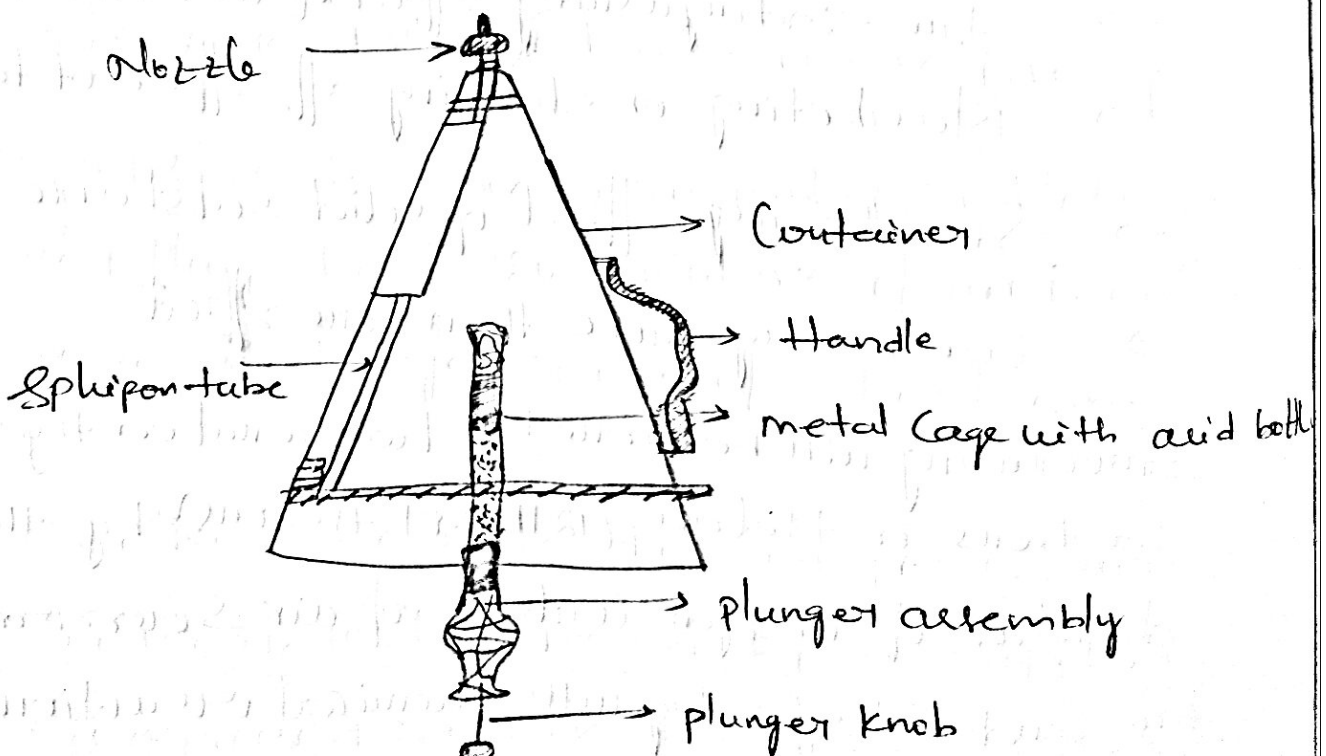 Nozzle
Container
Handle
Sphipon tube
metal Cage with acid bottl
plunger assembly
plunger knob